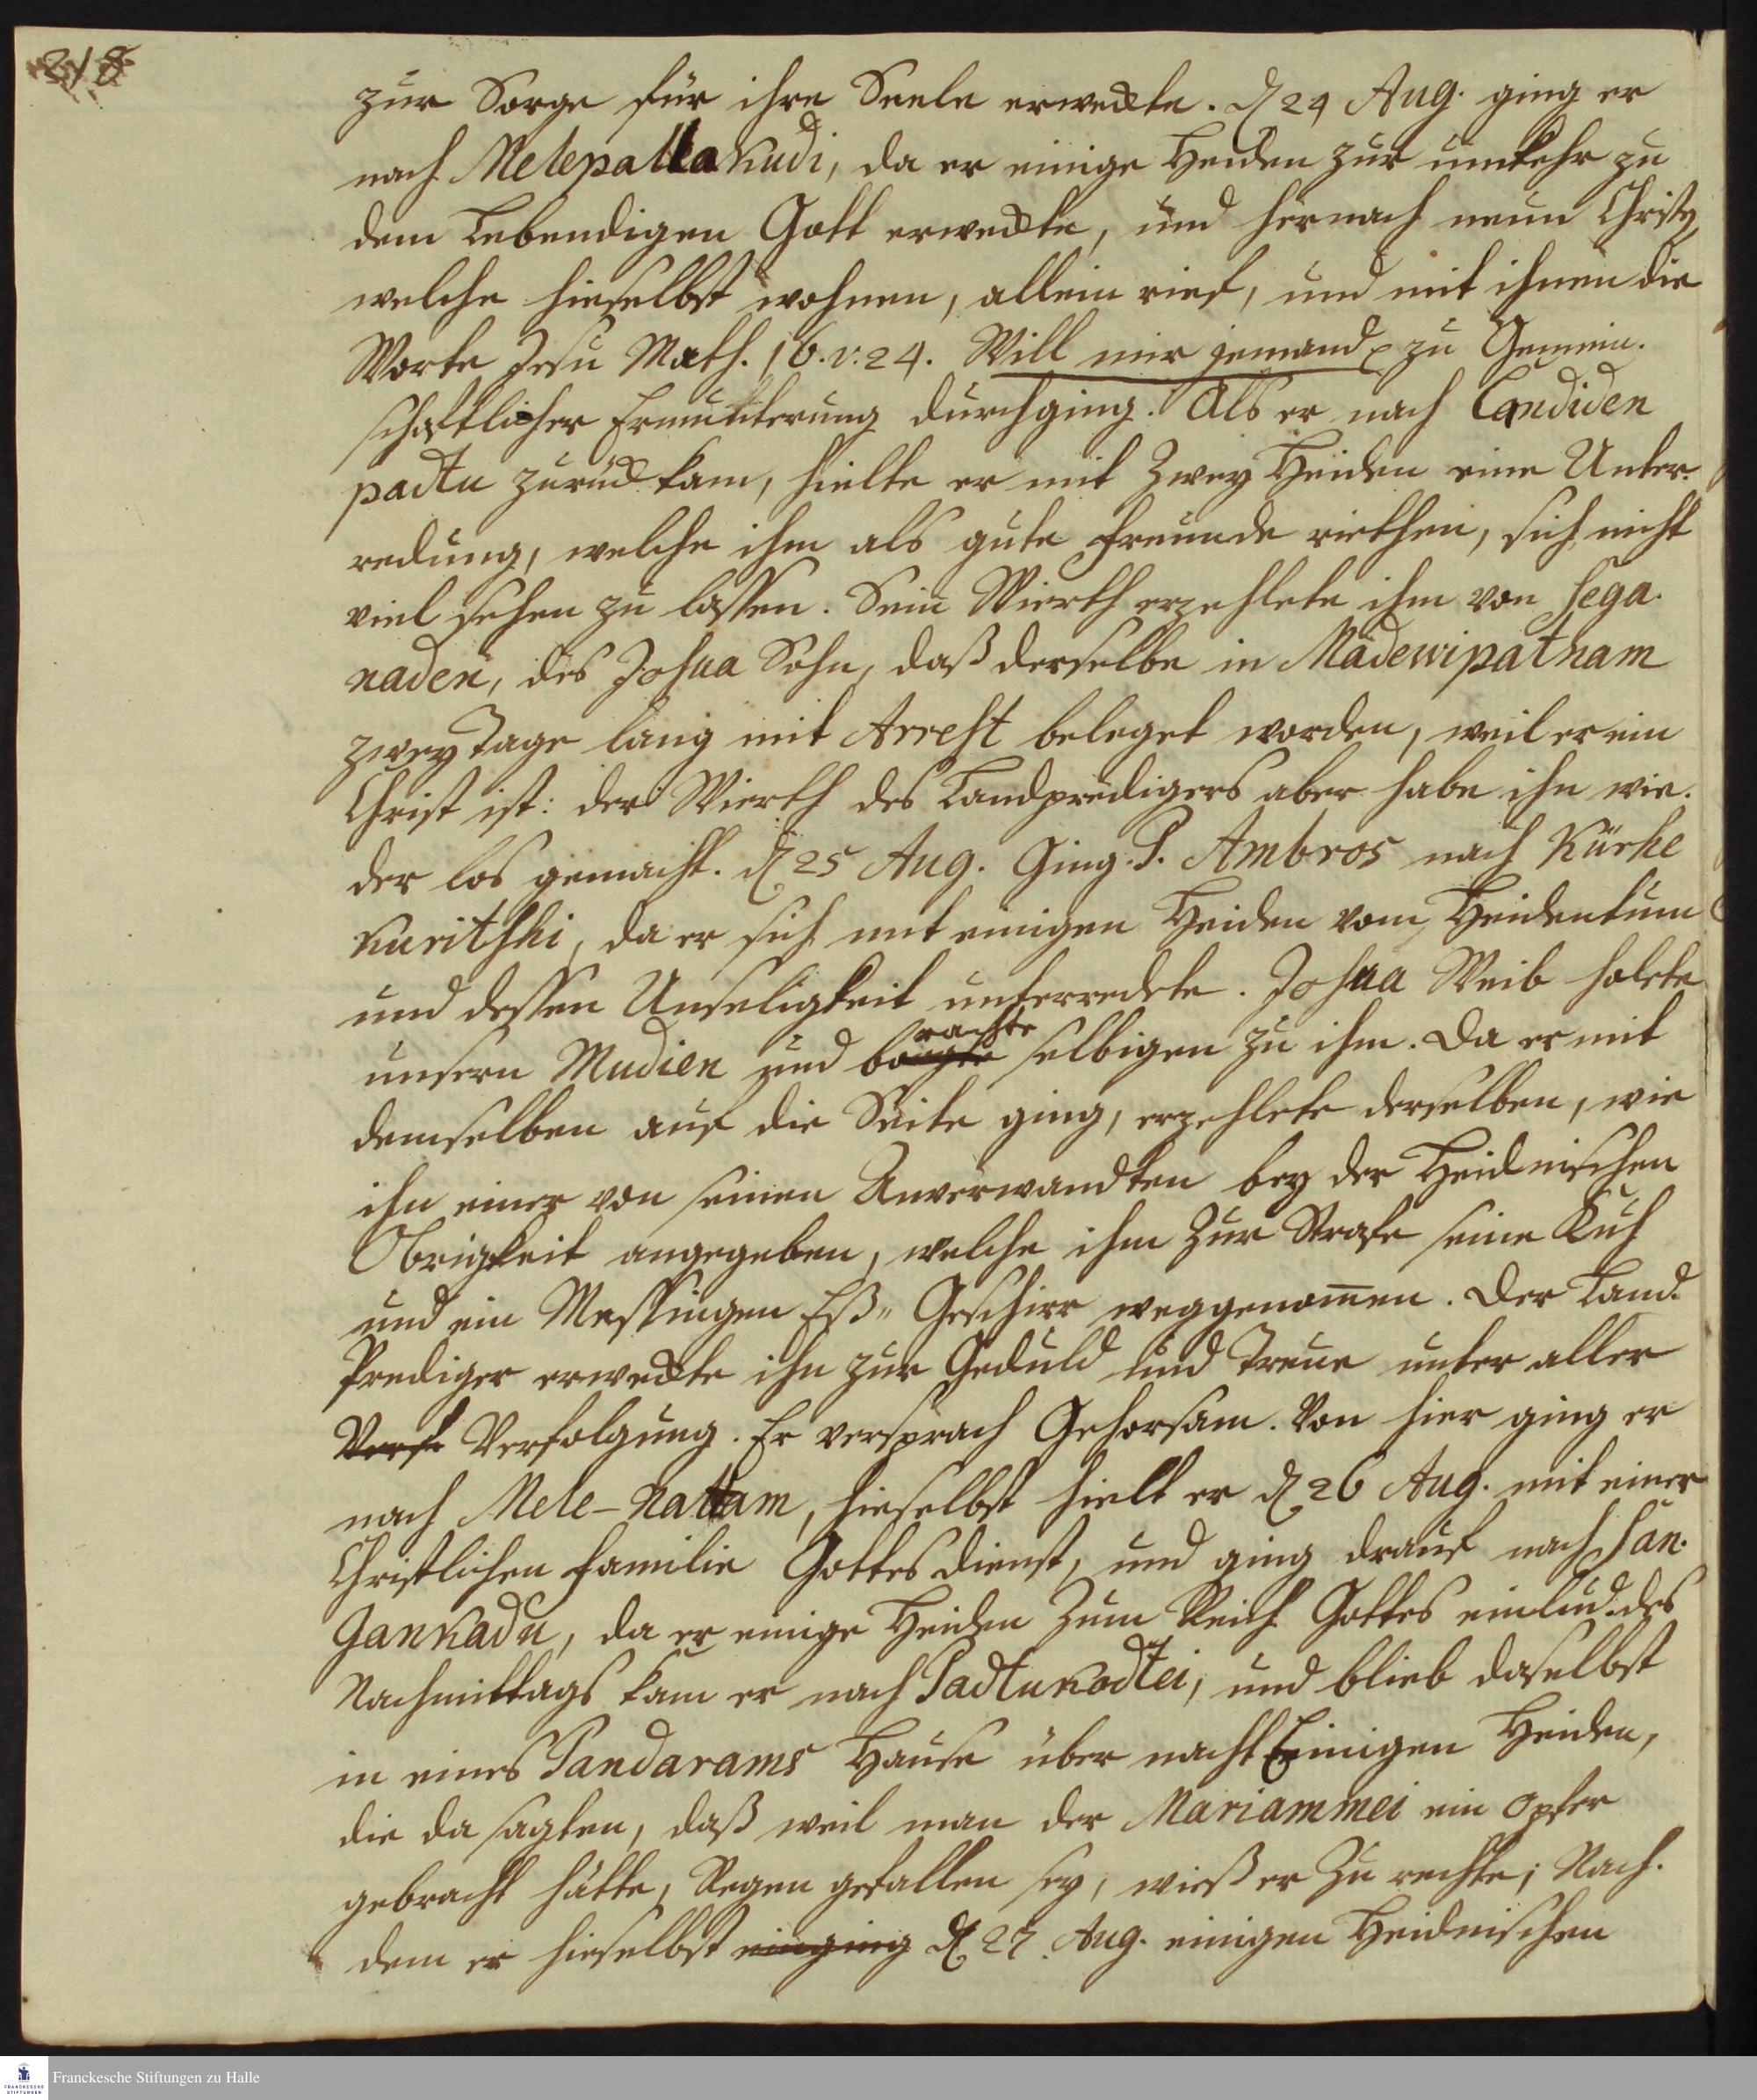 218
zur Sorge für ihre Seele erweckte. d 24 Aug. ging er
nach Melepallakudi, da er einige Heiden zur umkehr zu
dem Lebendigen Gott erweckte, und hernach neun Christen,
welche hieselbst wohnen, allein rief, und mit ihnen die
Worte Jesu Math. 16. v. 24. Will mir jemand zu Gemein-
schaftlicher Ermunterung durchging. Als er nach Candiden
padtu zurück kam, hielte er mit Zwey Heiden eine Unter-
redung, welche ihm als gute Freunde riethen, sich nicht
viel sehen zu lassen. Sein Wierth erzehlete ihm von Sega-
naden, des Josua Sohn, daß derselbe in Mädewipatnam
zwey Tage lang mit Arrest beleget worden, weil er ein
Christ ist: der Wierth des Landpredigers aber habe ihn wie-
der los gemacht. d 25 Aug. Ging P. Ambros nach Kürke
kuritshi, da er sich mit einigen Heiden vom Heidentum
und dessen Unseligkeit unterredete. Josua Weib holete
unsern Mudien und brachte selbigen zu ihm. Da er mit
demselben auf die Seite ging, erzehlete derselben, wie
ihn einer von seinen Anverwandten bey der Heidnischen
Obrigkeit angegeben, welche ihm Zur Strafe seine Kuh
und ein Messingen Eß- Geschirr weggenom̅en. Der Land-
Prediger erweckte ihn zur Geduld und Treue unter aller
Verf Verfolgung. Er versprach Gehorsam. Von hier ging er
nach Mele-Nattam, hieselbst hielt er d 26 Aug. mit einer
Christlichen Familie Gottesdienst, und ging drauf nach San-
Gankadu, da er einige Heiden Zum Reich Gottes einlud. des
Nachmittags kam er nach Padtukodtei, und blieb daselbst
in eines Pandarams Hause über nacht Einigen Heiden,
die da sagten, daß weil man der Mariammei ein Opfer
gebracht hätte, Regen gefallen sey, wieß er Zu rechte; Nach-
dem er hieselbst einging d 27. Aug. einigen Heidnischen
FRANCKESCHE STIFTUNGEN
Franckesche Stiftungen zu Halle